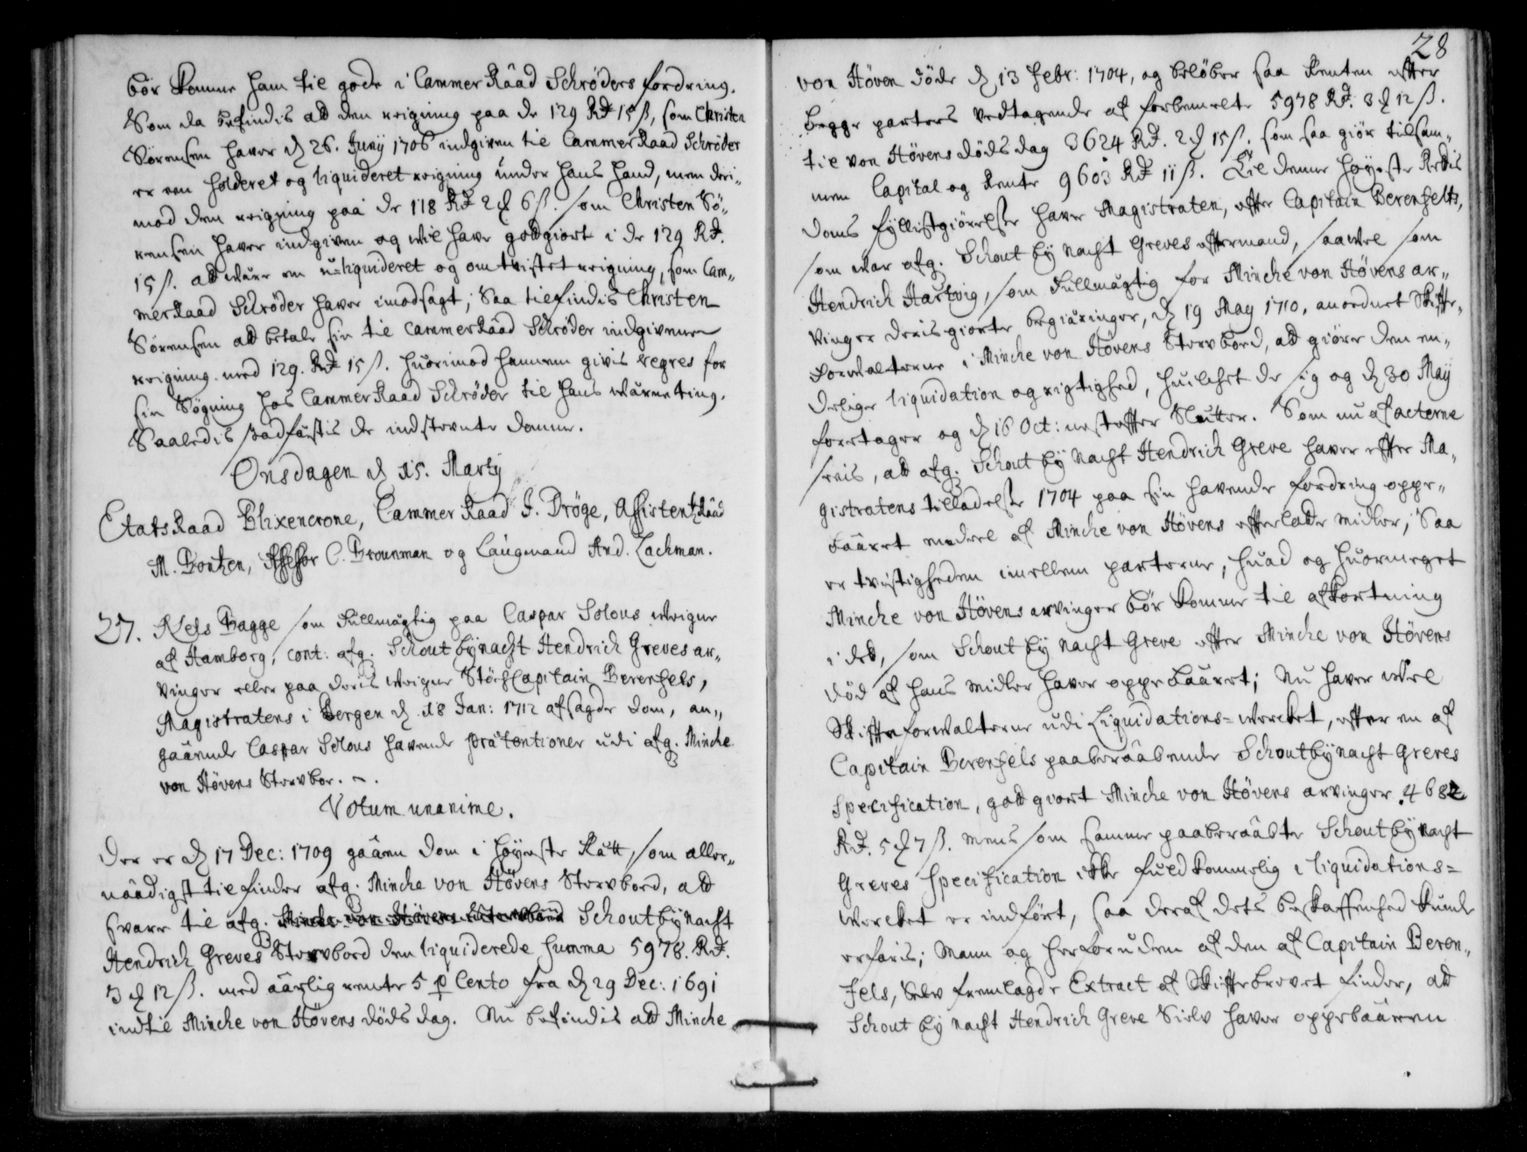 bør komme ham til gode i Cammer Raad Schrøders fordring.
Som da befindis at den reigning paa de 129 Rdr 15 ß, som Christen
Sørensen haver d 26. Juny 1706 indgiven til Cammer Raad Schrøder
er en holderet og liquideret reigning under hans haand, men deri-
mod den reigning paa de 118 Rdr 2 d 6 ß. som Christen Sø-
rensen haver indgiven og wil have godgiort i de 129 Rdr.
15 ß. at wære en u-liquideret og omtvistet reigning, som Cam-
mer Raad Schrøder haver imodsagt; Saa tilfindis Christen
Sørensen at betale sin til Cammer Raad Schrøder indgivene
reigning med 129. Rdr 15 ß. huorimod hannem givis regres for
sin Søgning hos Cammer Raad Schrøder til hans wærneting.
Saaledis stadfæstis de indstevnte Domme.
Onsdagen d 15. Martij
Etats Raad Blixencrone, Cammer Raad J. Dröge, Assistentz Raad
M. Bontzen, Assessor C. Brounman og Laugmand And. Lachman.
27. Niels Bagge som Fullmægtig paa Caspar Solous weigne
af Hamborg, cont: afg. Schoutbynacht Hendrich Greves ar-
vinger eller paa deris weigne StöchCapitain Berenfels,
Magistratens i Bergen d 18 Jan: 1712 afsagde dom, an-
gaaende Caspar Solous havende prætentioner udi afg. Minche
von Hövens Stervboe.
Votum unanime.
Der er d 17 Dec: 1709 gaaen dom i høyeste Rætt, som aller-
naadigst tilfinder afg. Minche von Hövens Stervboed, at
svare til afg. Minche von Hövens Stervboed Schoutbynacht
Hendrich Greves Stervboed den liquiderede summa 5978. Rdr.
3 d 12 ß. med aarlig rente 5 p Cento fra d 29 Dec: 1691
indtil Minche von Hövens døds dag. Nu befindis at Minche
28
von Höven døde d 13 Febr: 1704, og beløber saa Renten efter
begge parters vedtagende af forbemelte 5978 Rdr. 3 d 12 ß.
til von Hövens døds dag 3624 Rdr. 2 d 15 ß. som saa giør tilsam-
men Capital og Rente 9603 Rdr 11 ß. Til denne Høyeste Retis
doms fyllistgiørelse haver Magistraten, efter Capitain Berenfelts,
som war afg. Schout by nacht Greves eftermand, saavel som
Hendrich Hartvig, som Fullmægtig for Minche von Hövens ar-
vinger deris giorte begiæringer, d 19 May 1710, anordnet Skifte-
forvalterne i Minche von Hövens Stervboed, at giøre den en-
delige liquidation og rigtighed, huilchet de sig og d 30 May
foretager og d 16 Oct: nestefter Slutter. Som nu af acterne
sees, at afg. Schout by nacht Hendrich Greve haver efter Ma-
gistratens tilladelse 1704 paa sin havende fordring oppe-
baaret meedel af Minche von Hövens efterladte midler, Saa
er tvistigheden imellem parterne, huad og huormeget
Minche von Hövens arvinger bør komme til afkortning
i det, som Schout by nacht Greve efter Minche von Hövens
død af hans midler haver oppebaaret; Nu haver wel
Skifteforvalterne udi Liquidations-wercket, efter en af
Capitain Berenfels paaberaabende Schoutbynacht Greves
specification, godgiort Minche von Hövens arvinger 4682
Rdr. 5 d 7 ß. mens som samme paaberaabte Schoutbynacht
Greves specification icke fuldkommelig i liquidations-
wercket er indført, saa deraf dets beskaffenhed kunde
erfaris; Mann og herforuden af den af Capitain Beren-
fels, selv fremlagde Extract af Skiftebrevet finder, at
Schout by nacht Hendrich Greve Sielv haver oppebaaren